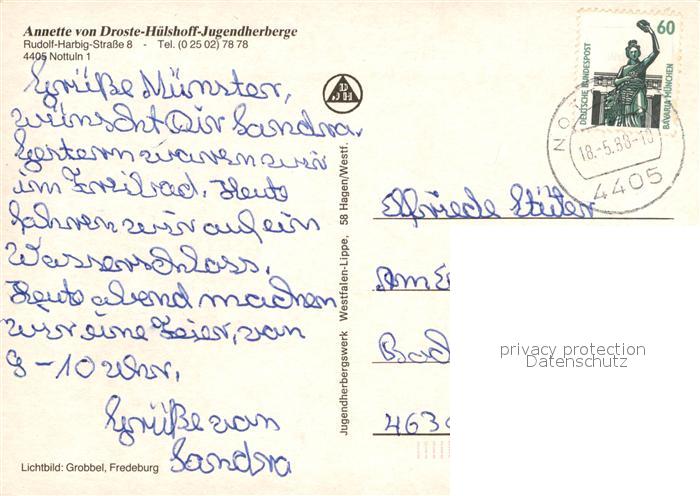 Annette von Droste-Hülshoff-Jugendherberge
Rudolf-Harbig-Straße 8 - Tel. (0 25 02) 78 78
4405 Nottuln 1
Grüße Münster,
wünscht Dir Sandra.
Gestern waren wir
im Freibad. Heute
fahren wir auf ein
Wasserschloss.
Heute abend machen
wir eine Feier, von
8-10 Uhr.
Grüße von
Sandra
Lichtbild: Grobbel, Fredeburg
DJH
Jugendherbergswerk Westfalen-Lippe, 58 Hagen/Westf.
60
DEUTSCHE BUNDESPOST
BAVARIA MÜNCHEN
NOT
18.-5.88-18
4405
Elfriede Stüter
Am
Bad
463
privacy protection
Datenschutz